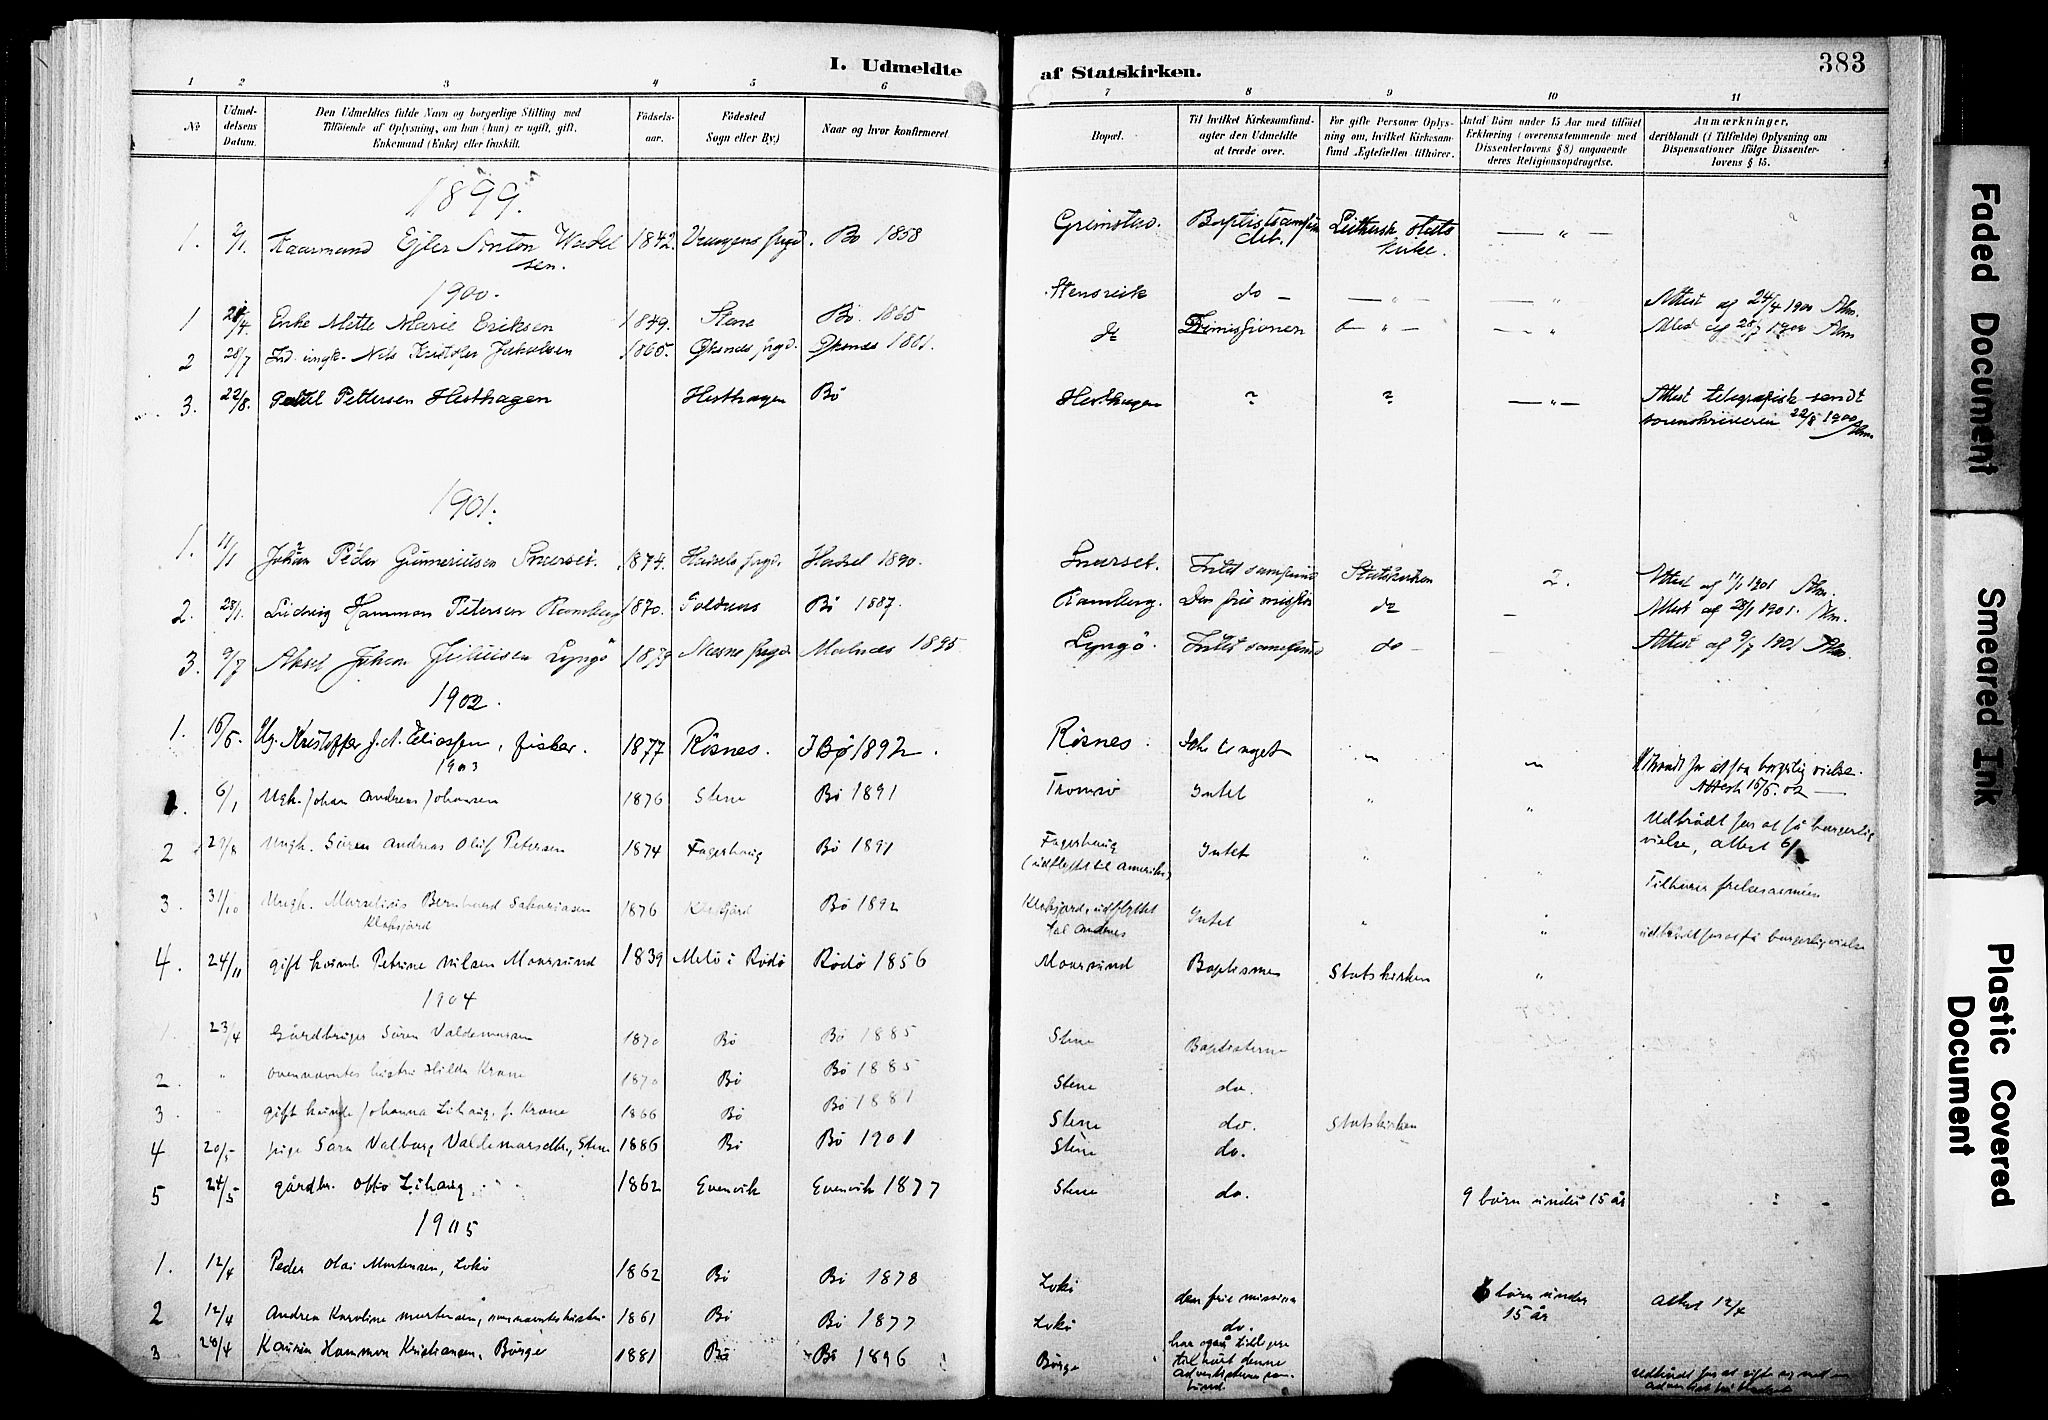 I. Udmeldte af Statskirken.
383
1 2 3 4 5 6 7 8 9 10 11
No
Udmel-
delsens
Datum.
Den Udmeldtes fulde Navn og borgerlige Stilling med
Tilføiende af Oplysning, om han (hun) er ugift, gift,
Enkemand (Enke) eller fraskilt.
Fødsels-
aar.
Fødested
Sogn eller By.)
Naar og hvor konfirmeret
Bopæl.
Til hvilket Kirkesamfund-
agter den Udmeldte
at træde over.
For gifte Personer Oplys-
ning om, hvilket Kirkesam-
fund Ægtefællen tilhører.
Antal Børn under 15 Aar med tilføiet
Erklæring (overensstemmende med
Dissenterlovens § 8) angaaende
deres Religionsopdragelse.
Anmærkninger,
deriblandt (i Tilfælde) Oplysning om
Dispensationer ifølge Dissenter-
lovens § 15.
1899.
1. 2/1. Kaarmand Ejler Anton Wedel
sen. 1842. Bø 1858 Grimstad. Baptistsamfun
det. Luthersk stats
kirke. — " —
1900.
1 24/4. Enke Mette Marie Eriksen 1849. Stene Bø 1865 do — — " — — " Attest af 24/4 1900
2 28/7 Nils Kristofer Jakobsen 1865. Øksnes Øksnes 1881. do — " — Attest af 28/7 1900
3. 22/8. Pettersen Hesthagen Hesthagen Bø Hesthagen ? ? — " — Attest telegrafisk sendt
sorenskriveren 22/8 1900
1901.
1. 11/1 Johan Peder Gunneriusen 1874. Hadsel 1890. Intet samfund Statskirken 2. Attest af 11/1 1901
2. 28/1. Ludvig Hammon Petersen Ramberg 1870. Bø 1887. Ramberg. Den frie do — Attest af 28/1 1901.
3. 9/7 Aksel Johan Juliusen Lyngö Malnes 1895 Lyngö. Intet samfund do — Attest af 9/7 1901
1902.
1. 15/5. Ug. Kristoffer J. A. Eliassen, fisker. 1877 Røsnes. I Bø 1892. Røsnes. Ikke til noget " " Udtraadt for at faa borgerlig vielse.
Attest 15/5. 02 —
1903
6/1 Ugk. Johan Andreas Johansen 1876 Stene Bø 1891 Tromsø Intet " " Udtrådt for at få borgerlig
vielse, attest 6/1
2 Ungk. Sören Andreas Oluf Petersen 1874 Fagerhaug Bø 1891 Fagerhaug
(udflyttet til Amerika) Intet " " Tilhører frelsesarmeen
3. 31/10 Ungk. Bernhard Sakariasen
Klakfjord 1876 Klakfjord Bö 1892 Klakfjord, udflyttet
til Andenes Intet " " udtrådt for at få borgerlig vielse
4. 24/11 gift kvinde Petrine Nilsen Maarsund 1839 Melö i Rödö Rödö 1856 Maarsund Baptismen Statskirken "
1904
1. 23/4 Gårdbruger Sören Valdemarsen 1870 Bö Bö 1885 Stene Baptisterne
2. " ovennævntes hustru Hilda Krane 1870 Bö Bö 1885 Stene do.
3. " gift kvinde Johanna Lihaug, f. Krane 1866 Bö Bö 1881 Stene do. Statskirken
4 20/5 pige Sara Valborg Valdemarsdtr., Stene 1886 Bö Bö 1901 Stene do.
5 24/5 gårdbr. Otto Lihaug 1862 Evenvik Evenvik 1877 Stene do. 9 börn under 15 år
1905
1. 12/4 Peder Olai Mortensen, Lokö 1862 Bö Bö 1878 Lokö den frie mission 6 börn under
15 år Attest 12/4
2 12/4 Andrea Karoline Mortensen, ovennævntes hustru 1861 Bö Bö 1877 Lokö do.
3 28/4 Hammon Kristiansen, Börge 1881 Bö Bö 1896 Börge har også tidligere
tilhört denne
adventisternes sam-
fund. Udtrådt for at gifte sig med en

Faded Document
Smeared Ink
Plastic Covered
Document